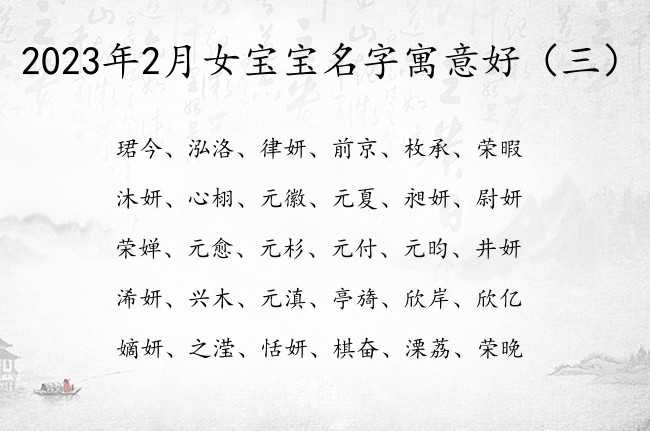 2023年2月女宝宝名字寓意好（三）
珺今、泓洛、律妍、前京、枚承、荣暇
沐妍、心栩、元徽、元夏、昶妍、尉妍
荣婵、元愈、元杉、元付、元昀、井妍
浠妍、兴木、元滇、亭旖、欣岸、欣亿
嫡妍、之滢、恬妍、棋奋、溧荔、荣晚